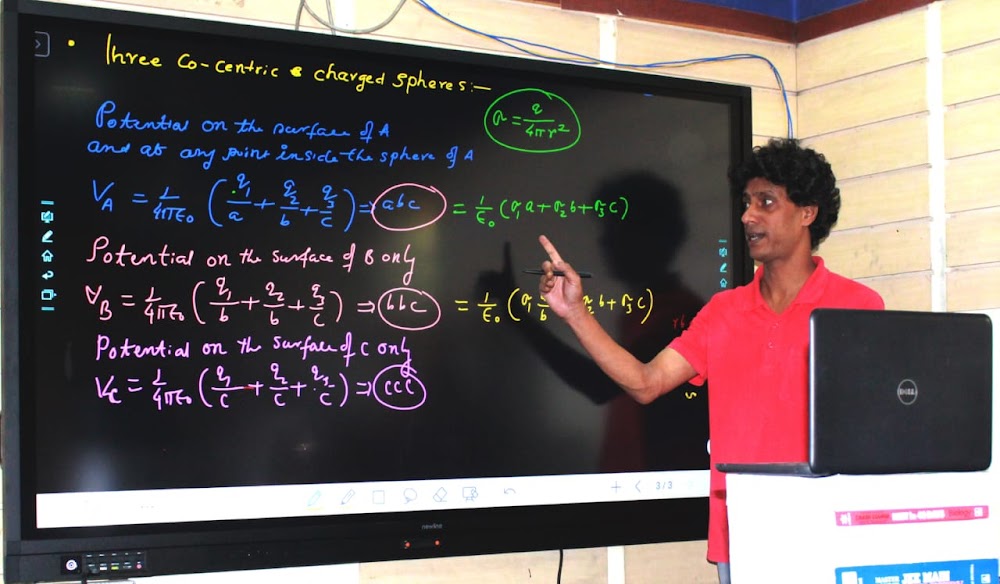 • Three Co-centric charged spheres:—
σ = q/4πr²
Potential on the surface of A
and at any point inside the sphere of A
V_A = 1/4πε₀ (q₁/a + q₂/b + q₃/c) ⇒ abc = 1/ε₀ (σ₁a + σ₂b + σ₃c)
Potential on the surface of B only
V_B = 1/4πε₀ (q₁/b + q₂/b + q₃/c) ⇒ bbc = 1/ε₀ (σ₁ b σ₂b + σ₃c)
Potential on the surface of C only
V_C = 1/4πε₀ (q₁/c + q₂/c + q₃/c) ⇒ ccc
3/3
newline
DELL
JEE MAIN